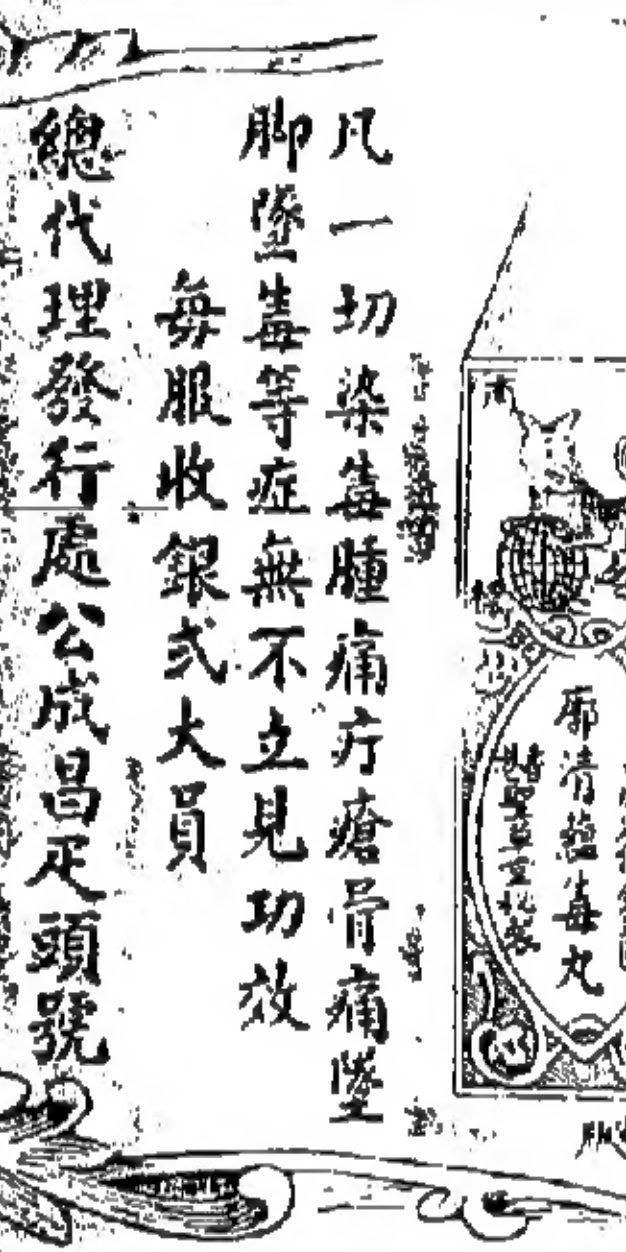 廓清蘊毒丸
凡一切染毒腫痛疔瘡骨痛墜
脚墜毒等症無不立見功效
每服收銀弍大員
總代理發行處公成昌疋頭號